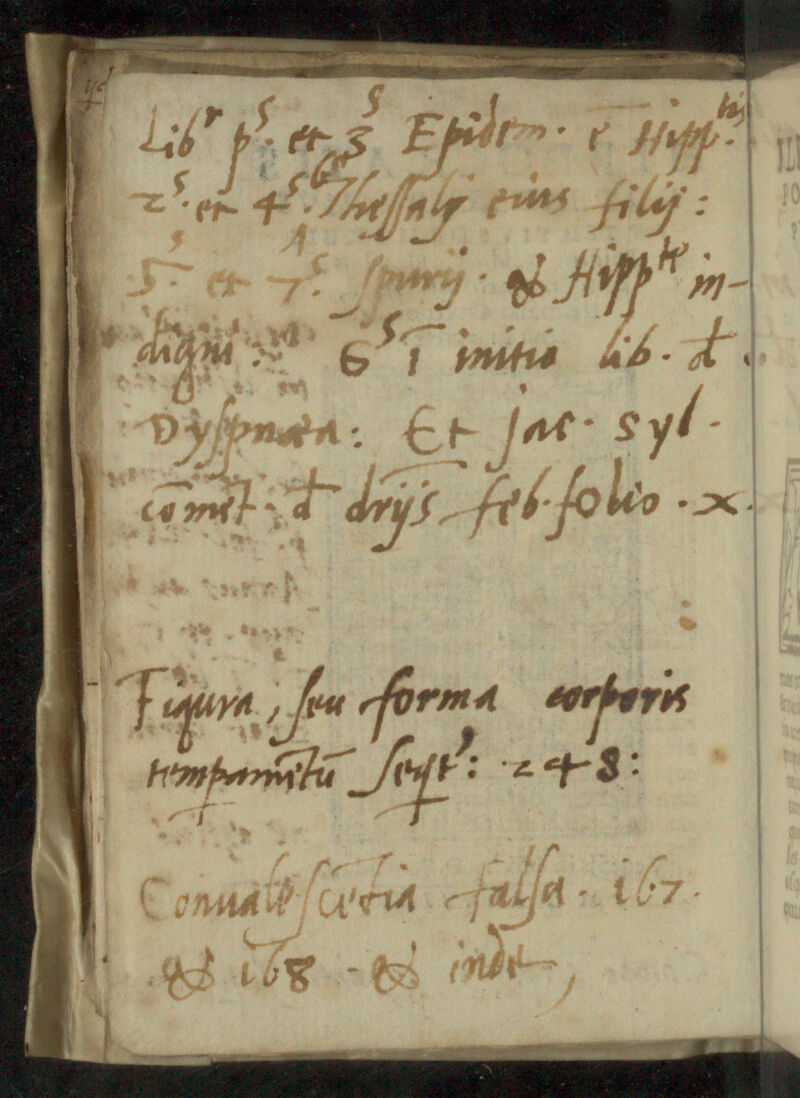 Lib^r p^s. et 3^s Epidem. ē Hipp^tis.
2^s. et 4^s. 6^s Thessalij eius filij:
5^s. et 7^s. spurij. & Hipp^te in-
digni: 6^s ī initio lib. đ
Dyspnœa: Et Jac. syl.
cōmēt. đ drijs feb. folio. x.
Figura, seu forma corporis
tempamētū seqt^r: 248:
Conualescētia falsa. 167.
& 168. & inde,